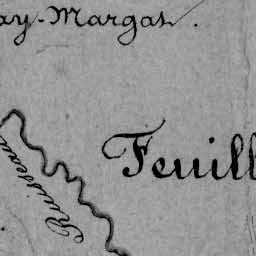 ay-Margat.
Feuill
Ruisseau